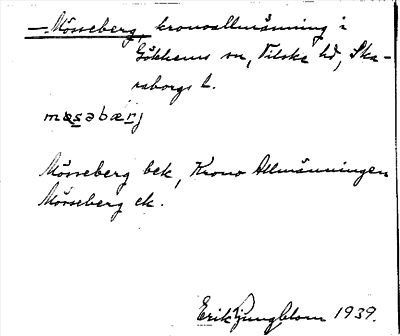 — Mösseberg, kronoallmänning i
Gökhems sn, Vilske hd, Ska-
raborgs l.
mɵsəbærj
Mösseberg bek, Krono Allmänningen
Mösseberg ek.
Erik Ljungblom 1939.